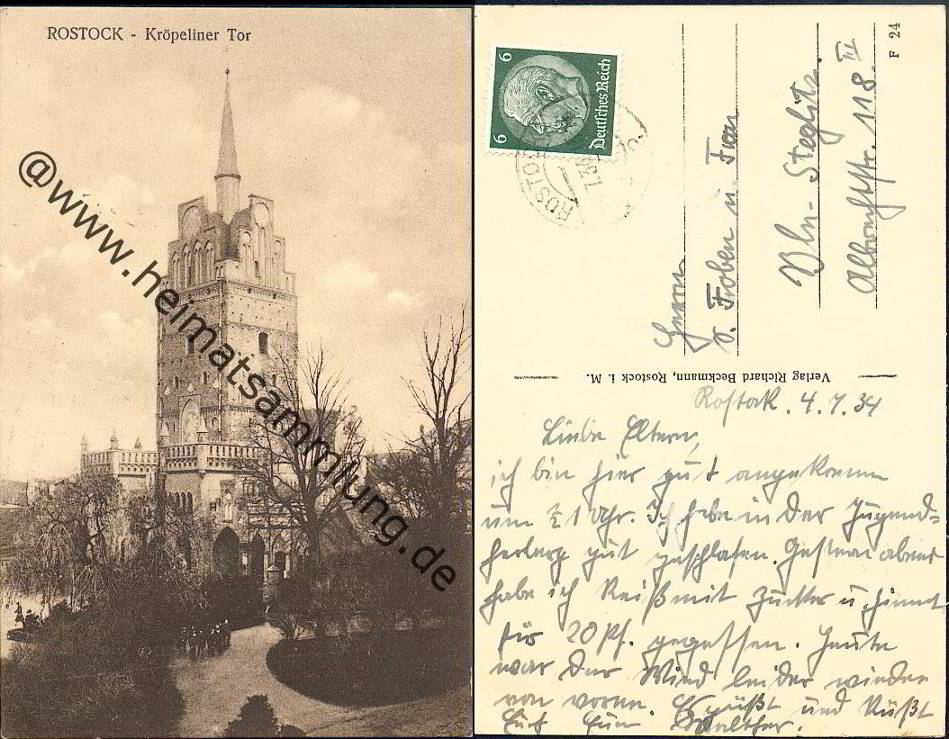 ROSTOCK - Kröpeliner Tor
@www.heimatsammlung.de
6
6
Deutsches Reich
ROSTO
F 24
Herrn
v. Froben u. Frau
Bln. - Steglitz.
Albrechtstr. 118 III
Verlag Richard Beckmann, Rostock i. M.
Rostock. 4.7.34
Liebe Eltern,
ich bin hier gut angekommen
um 1 Uhr. Ich habe in der Jugend-
herberg gut geschlafen. Gestern abend
habe ich Reiß mit Zucker u. Zimmt
für 20 Pf. gegessen. Heute
war der Wind leider wieder
von vorne. Es grüßt und küßt
Euch Euer Walther.